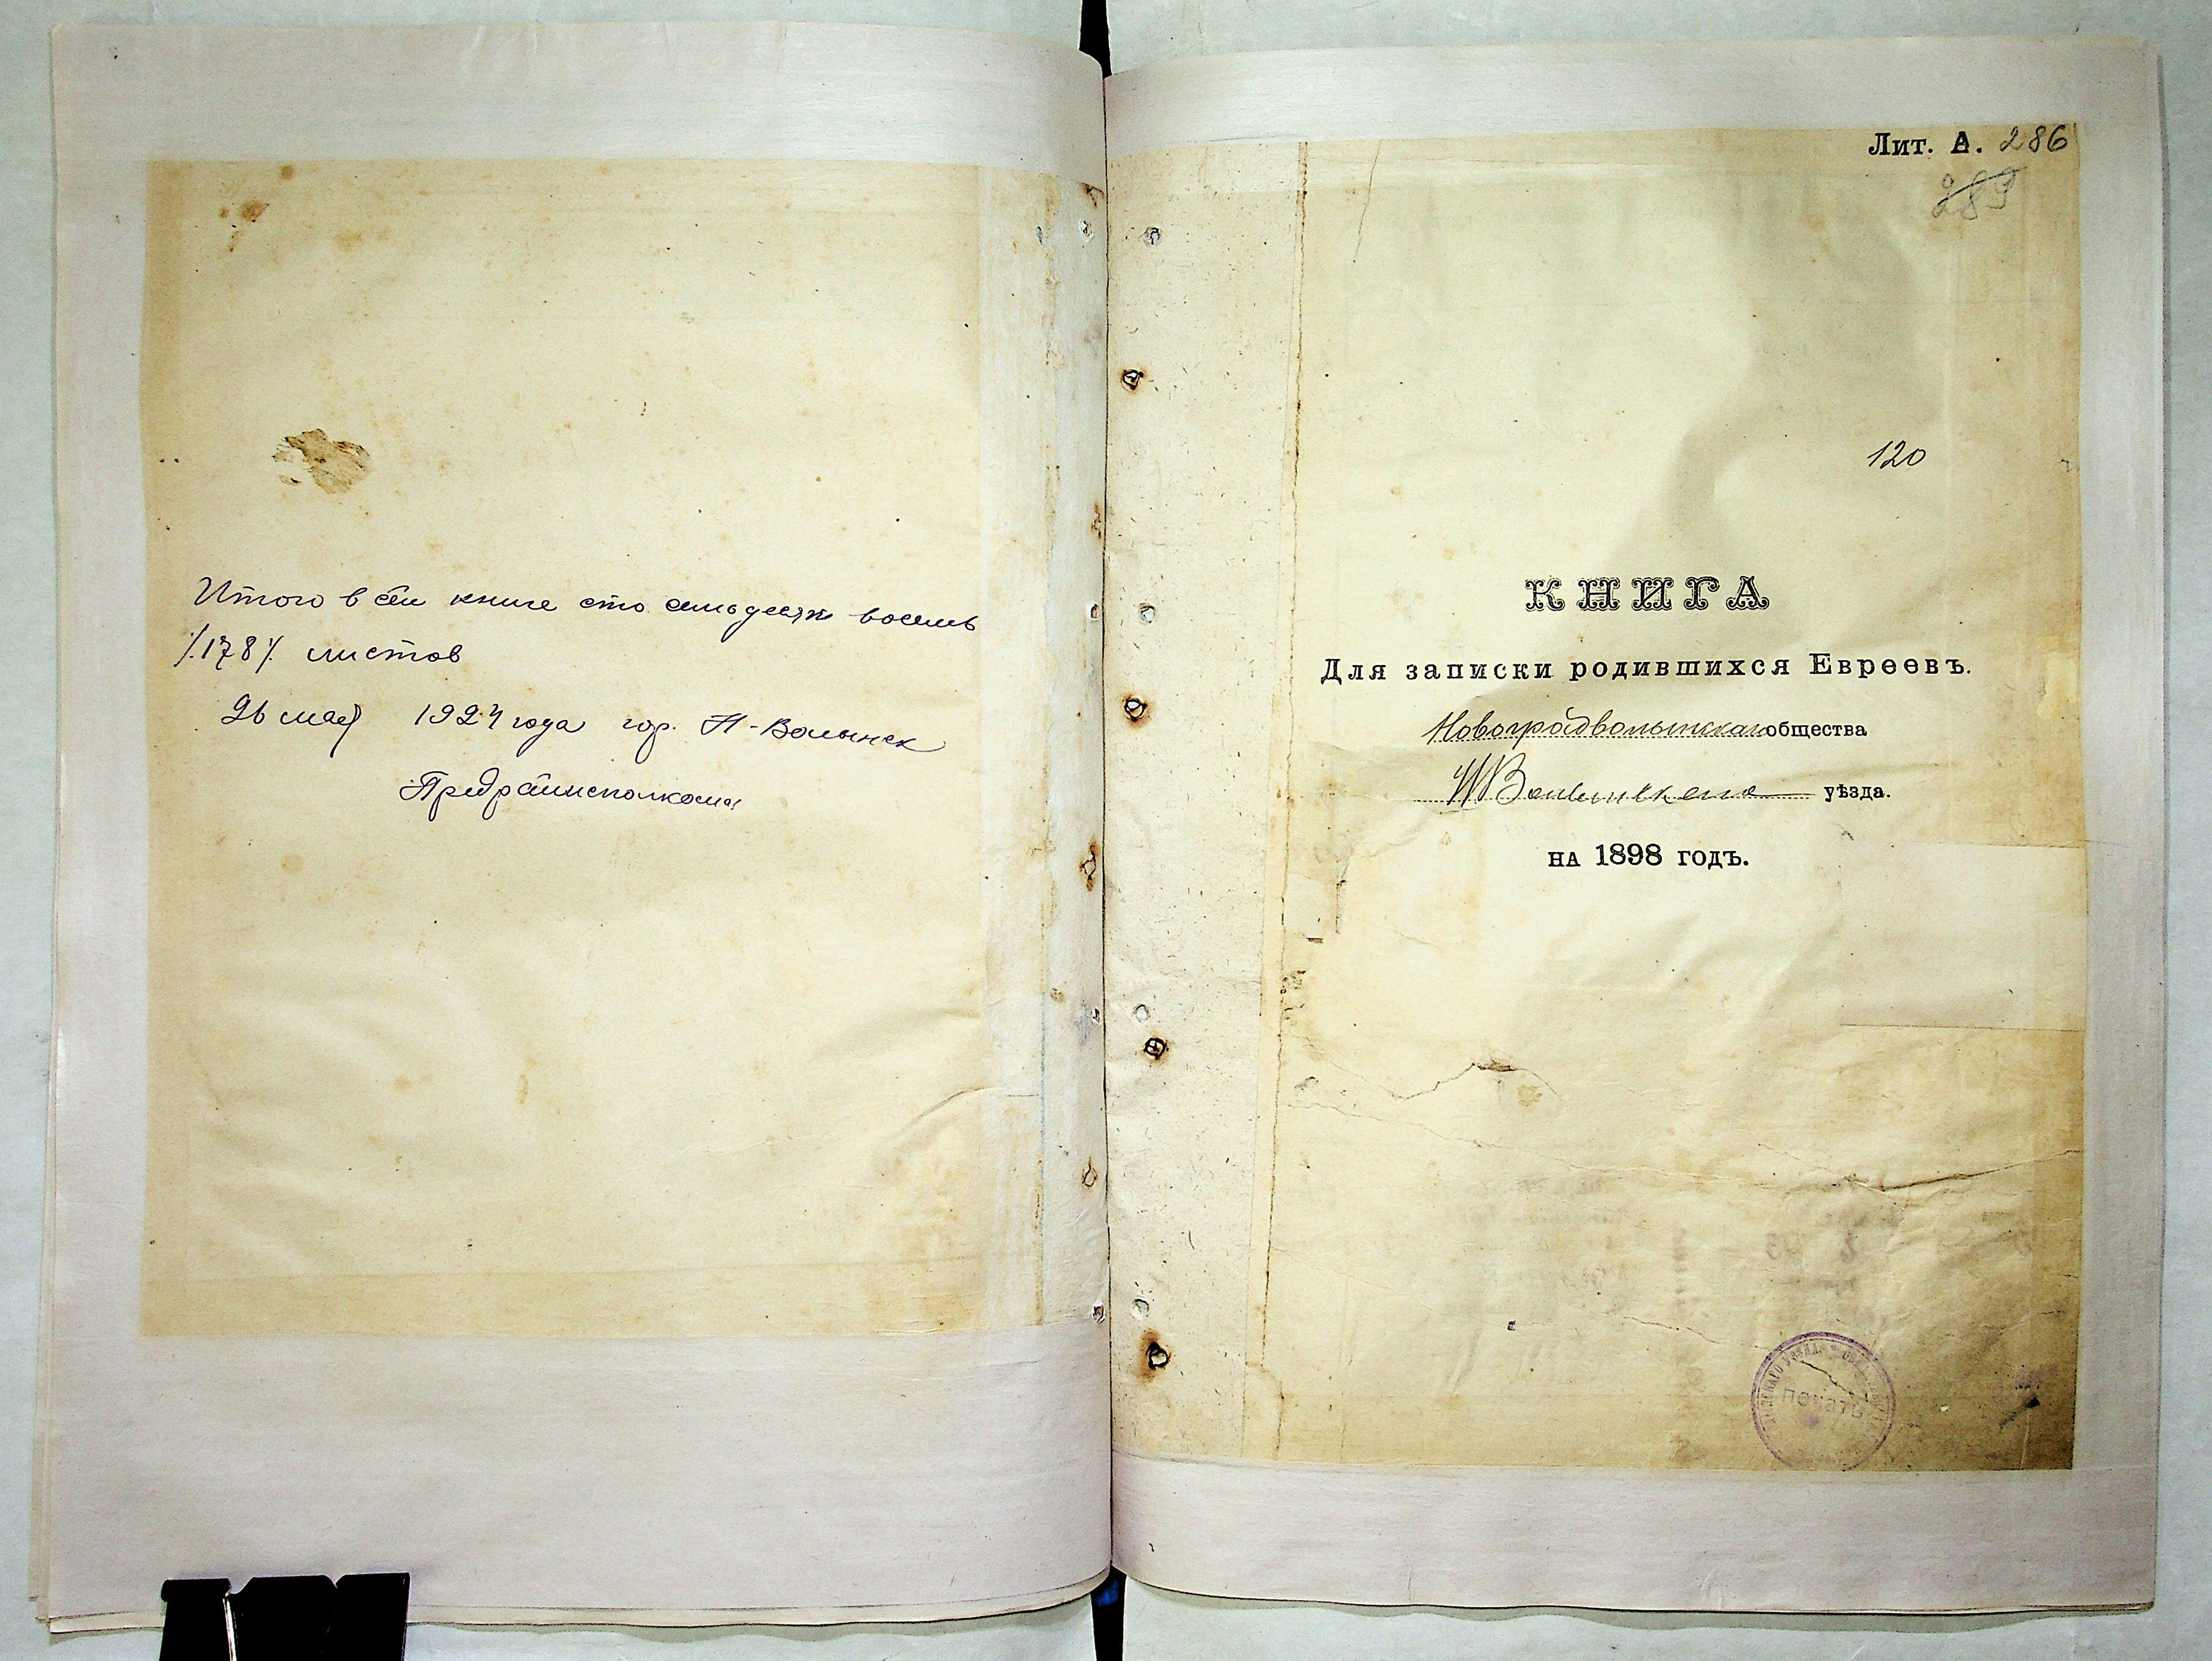 Итого в сей книге сто семьдесят восемь
/.178/. листов
26 мая 1924 года гор. Н-Волынск
Предрайисполкома
Лит. А. 286
289
120
КНИГА
Для записки родившихся Евреевъ.
Новоградволынскаго общества
НВолынскаго уѣзда.
на 1898 годъ.
печать